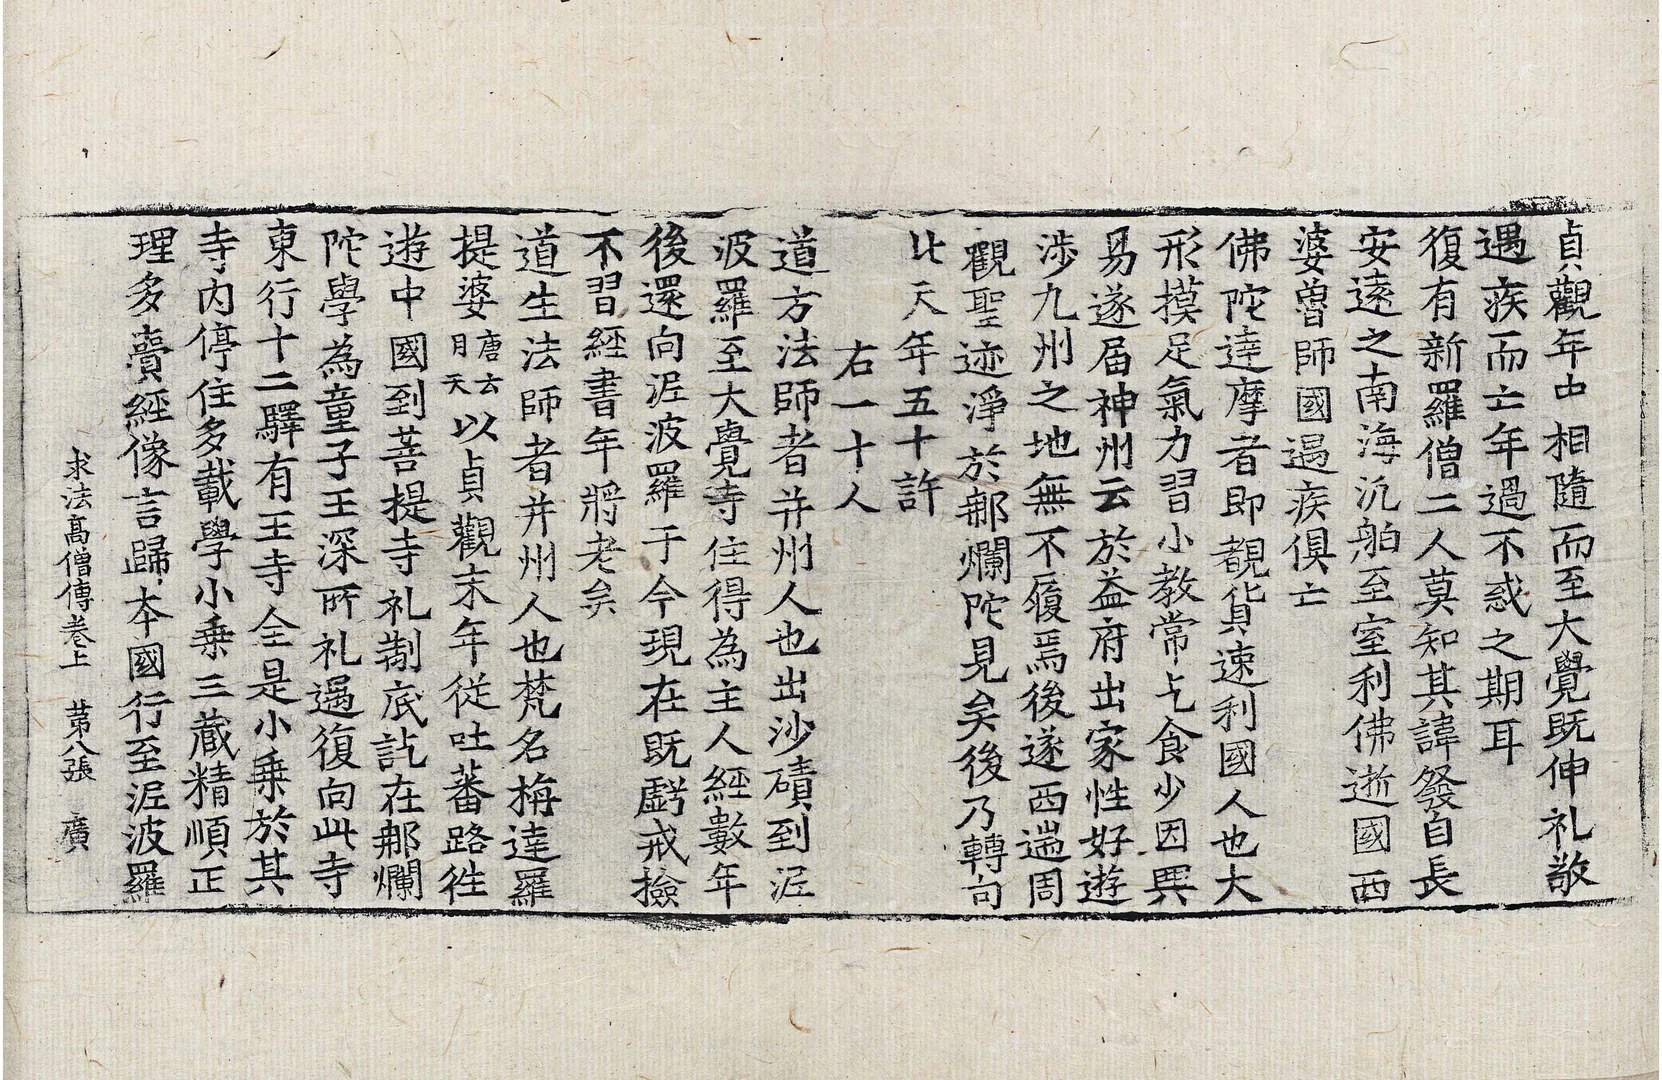 貞觀年中相隨而至大覺既伸礼敬
遇疾而亡年過不惑之期耳
復有新羅僧二人莫知其諱發自長
安遠之南海汎舶至室利佛逝國西
婆魯師國遇疾俱亡
佛陀達摩者即覩貨速利國人也大
形摸足氣力習小教常乞食少因興
易遂届神州云於益府出家性好遊
涉九州之地無不履焉後遂西遄周
觀聖迹淨於郍爛陀見矣後乃轉向
北天年五十許
右一十人
道方法師者并州人也出沙磧到泥
波羅至大覺寺住得為主人經數年
後還向泥波羅于今現在既虧戒撿
不習經書年將老矣
道生法師者并州人也梵名栴達羅
提婆唐云月天以貞觀末年從吐蕃路往
遊中國到菩提寺礼制底訖在郍爛
陀學為童子王深所礼遇復向此寺
東行十二驛有王寺全是小乗於其
寺内停住多載學小乗三藏精順正
理多賫經像言歸本國行至泥波羅
求法高僧傳卷上　苐八張　廣